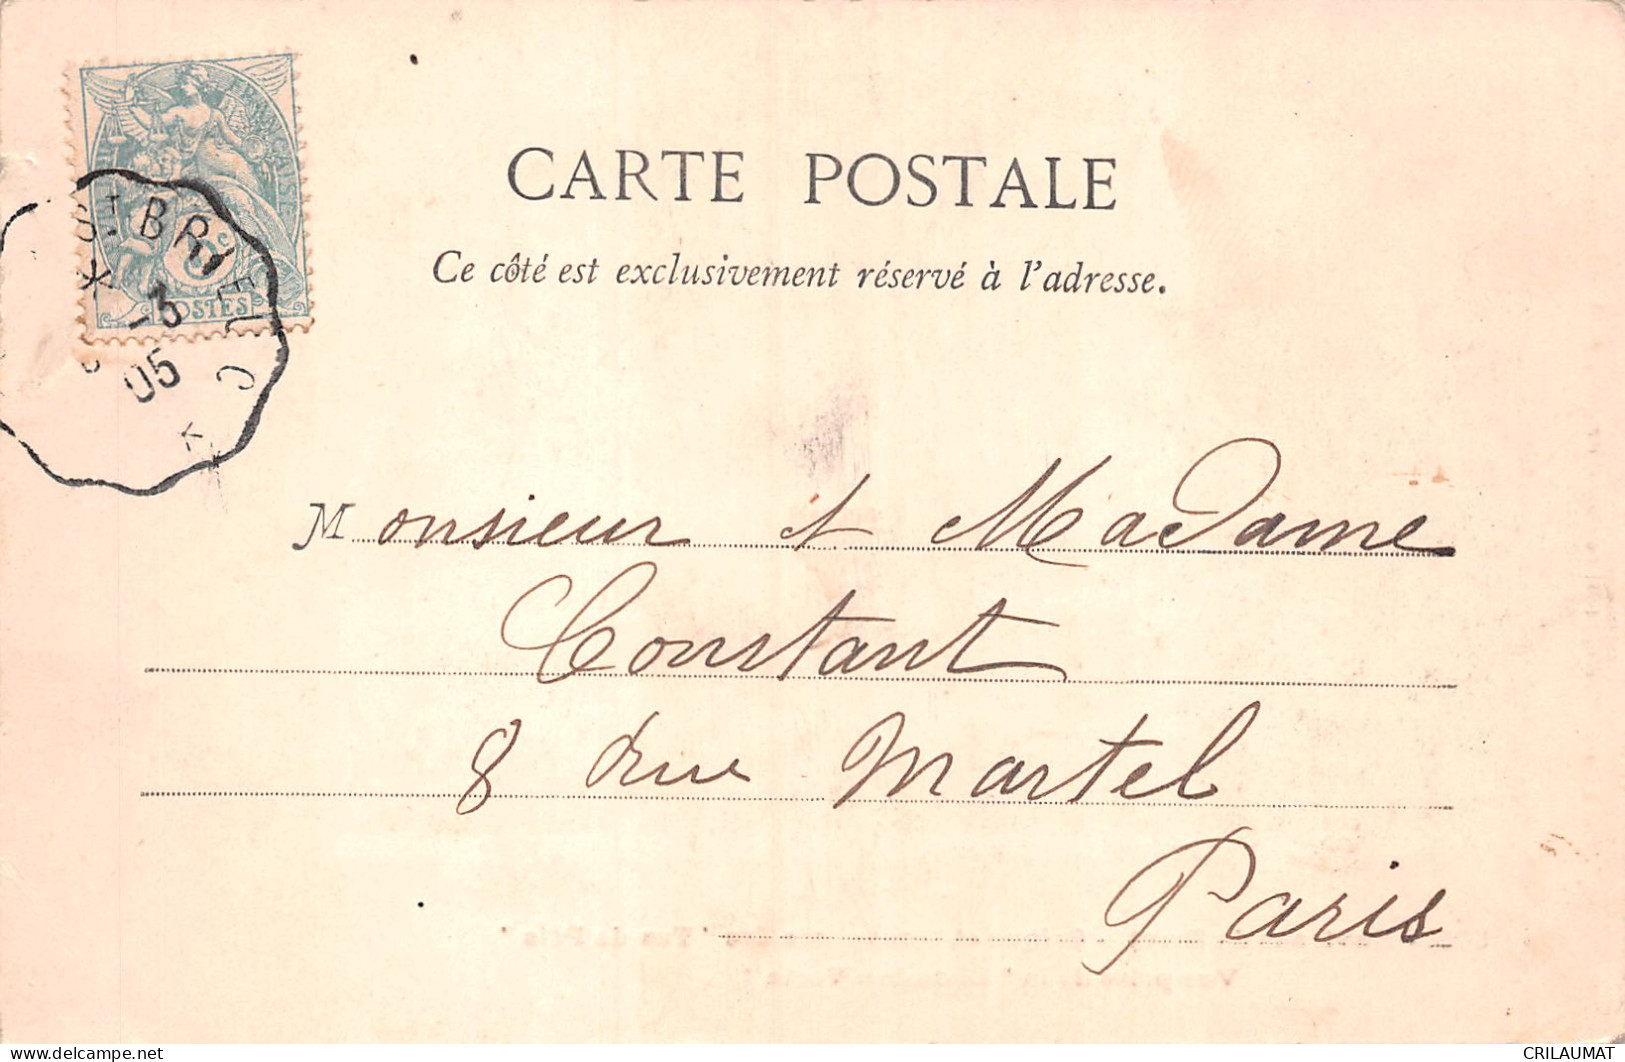 CARTE POSTALE
Ce côté est exclusivement réservé à l'adresse.
FRANÇAISE
5c
POSTES
ST BRIEUC
3
05
Monsieur et Madame
Constant
8 rue Martel
Paris
www.delcampe.net
CRILAUMAT